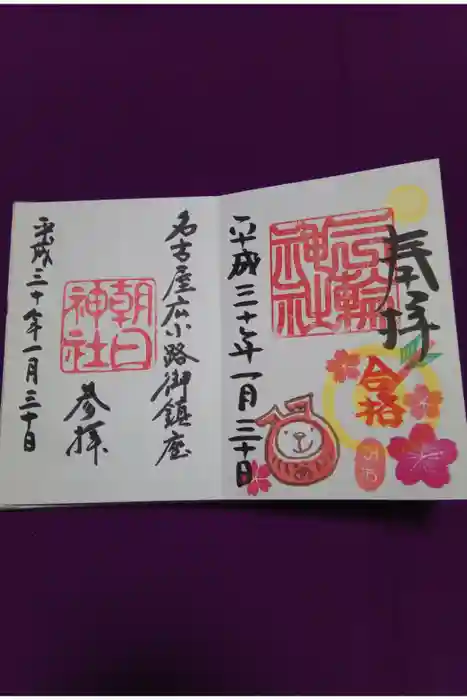 奉拝
三輪神社
合格
平成三十年一月三十日
名古屋広小路御鎮座
朝日神社
参拝
平成三十年一月三十日